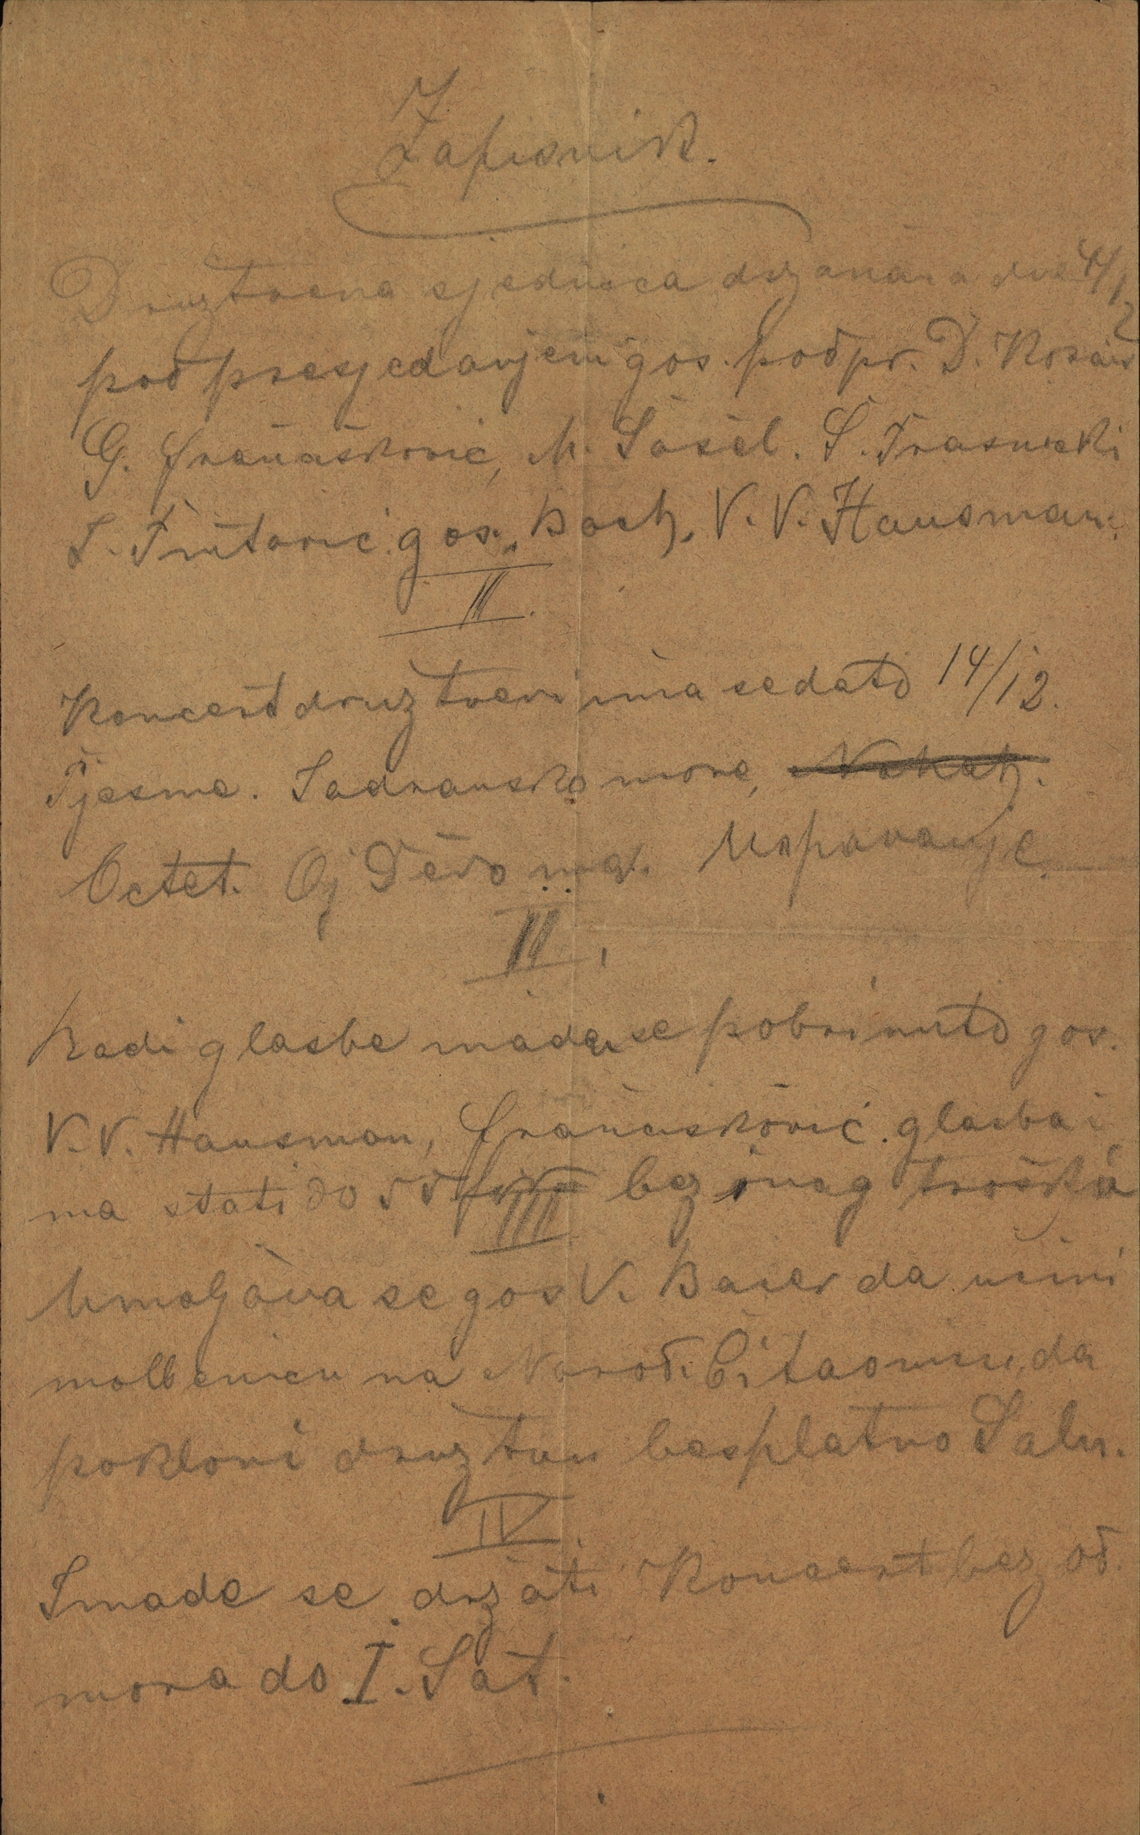 Zapisnik.
Družtvena sjednica držana dne 4/12
pod presjedanjem gos. podpr. D.
G. Frančišković, M. Šošel. S.
gos. Bach, V. V. Hausman.
II.
Koncert družtveni ima se dati 14/12.
Pjesme. Jadransko more,
Octet. Oj Uspavanje.
II.
Radi glasbe imade se pobrinuti gos.
V. V. Hausman, Frančišković. glasba i
ma stati do 55 for bez inog troška
III
Umoljava se gos V. Baier da učini
molbenicu na Narod. Čitaonicu, da
pokloni družtvu besplatno Salu.
IV.
Imade se držati Koncert bez od
mora do I. Sat.